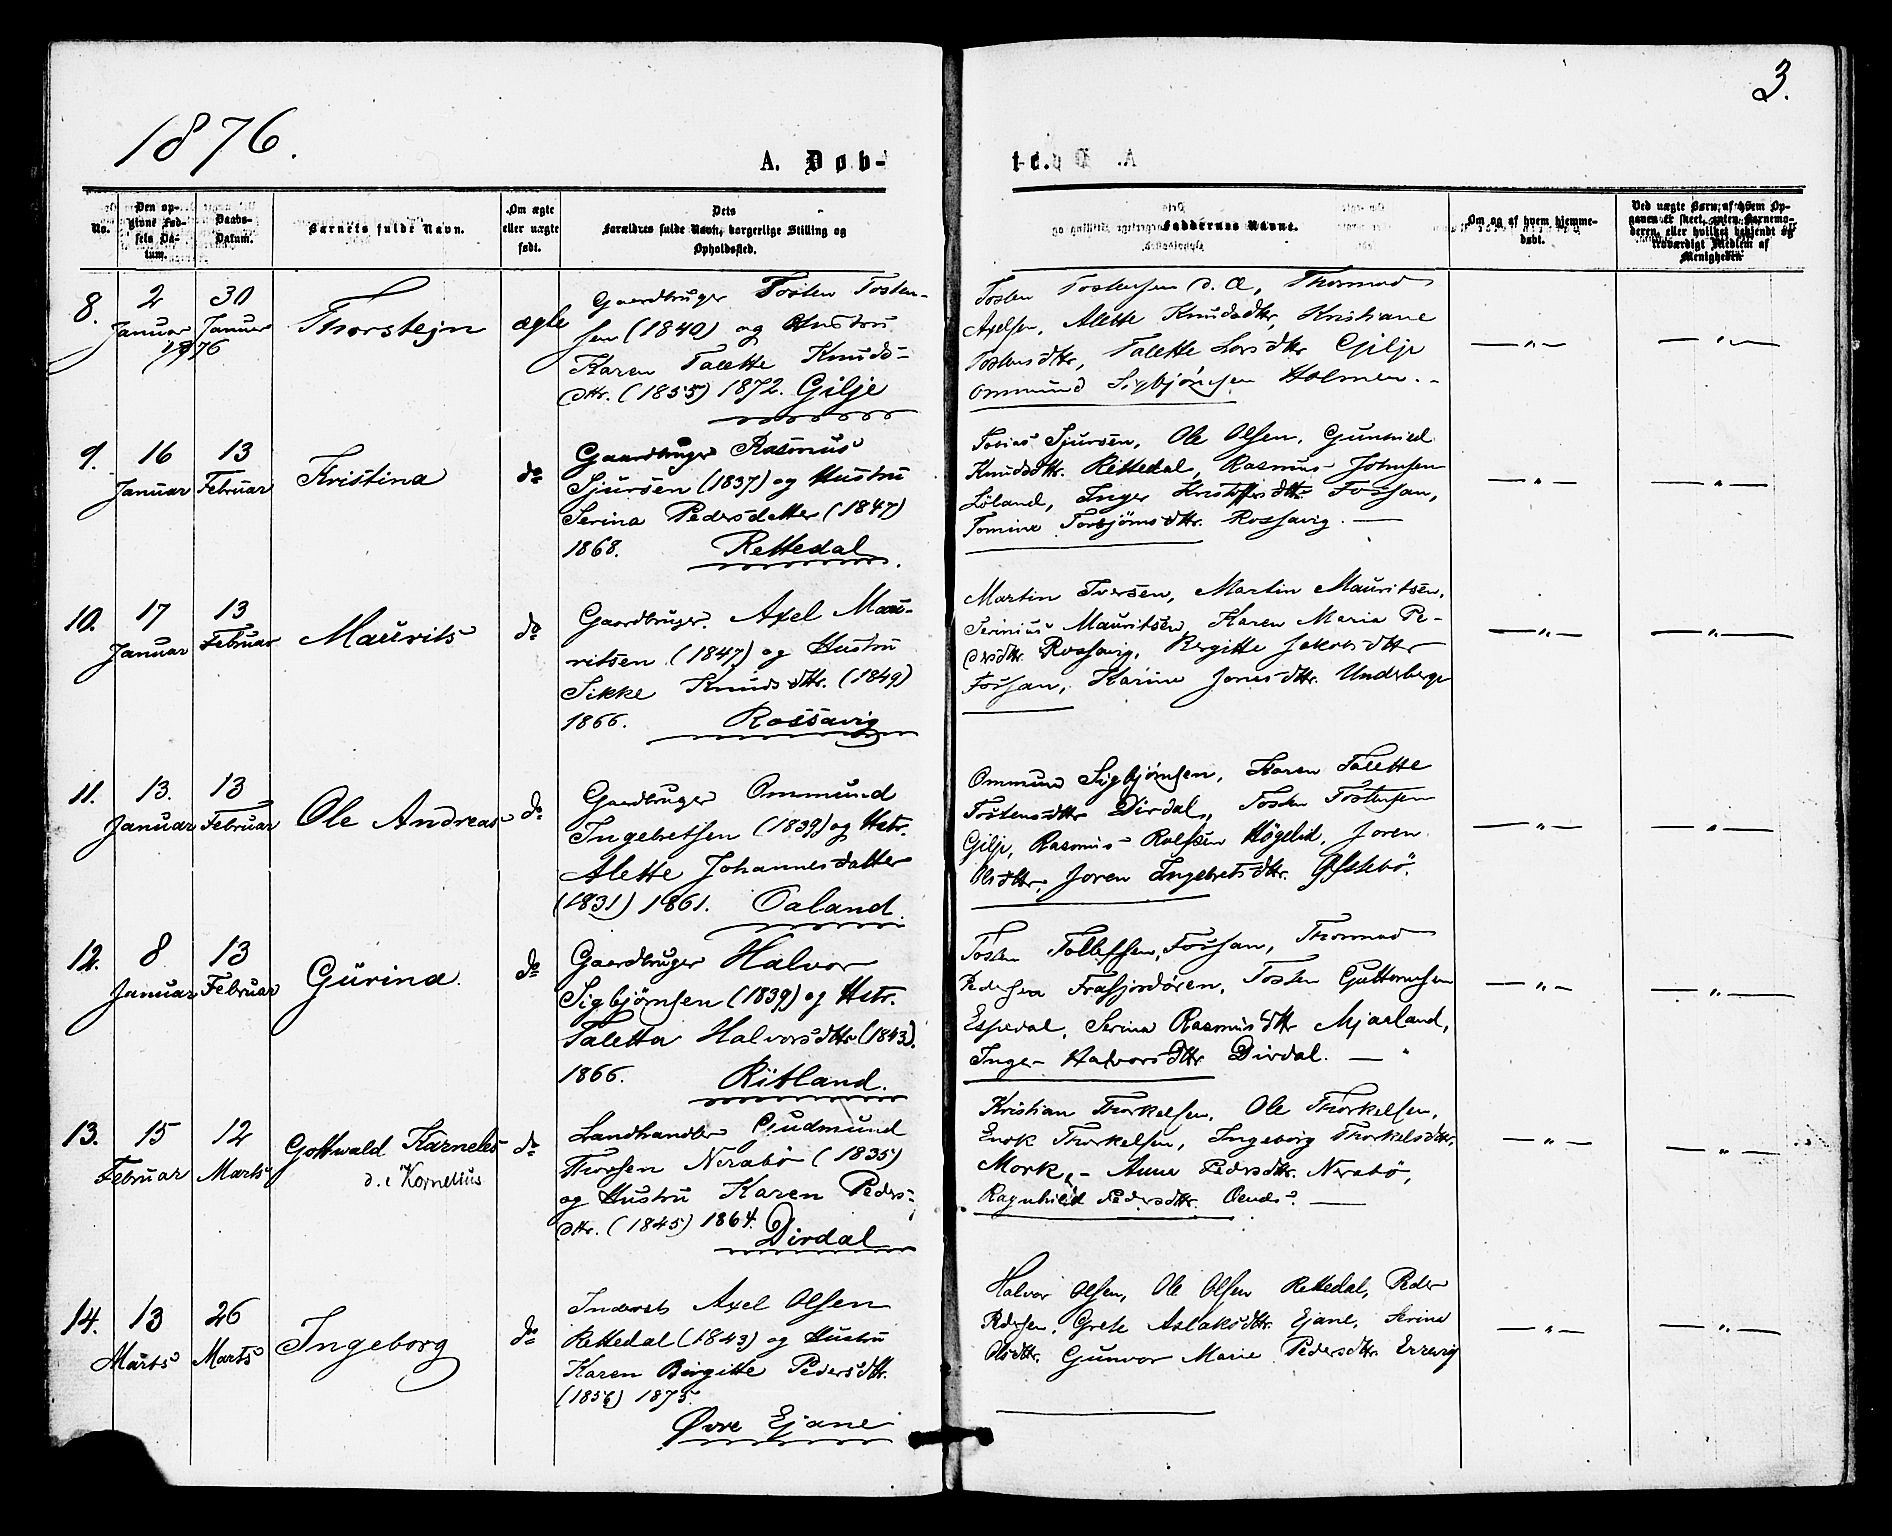 1876.
3.
A. Døb-
te.
No.
Den op-
givne Fød-
sels Da-
tum.
Daabs-
Datum.
Barnets fulde Navn.
Om ægte
eller uægte
født.
Dets
Forældres fulde Navn, borgerlige Stilling og
Opholdssted.
Faddernes Navne.
Om og af hvem hjemme-
døbt.
Ved uægte Børn, af hvem Op-
gaven er skeet, enten Barnemo-
deren, eller hvilket bekjendt og
troværdigt Medlem af
Menigheden
8.
2
Januar
1876
30
Januar
Thorstejn
ægte
Gaardbruger Tosten Tosten-
sen (1840) og Hustru
Karen Talette Knuds-
dttr. (1855) 1872. Gilje
Tosten Tostensen d. Æ, Thormod
Axelsen, Alette Knudsdttr, Kristiane
Tostensdttr, Talette Larsdttr Gilje
Ommund Sigbjørnsen Holmen.-
—„—
—„—
9.
16
Januar
13
Februar
Kristina
do
Gaardbruger Rasmus
Sjursen (1837) og Hustru
Serina Pedersdatter (1847)
1868. Rettedal
Tobias Sjursen, Ole Olsen, Gunhild
Knudsdttr. Rettedal, Rasmus Johnsen
Løland, Inger Kristoffersdttr. Fossan,
Tomine Torbjørnsdttr. Rossavig. —
—„—
—„—
10.
17
Januar
13
Februar
Maurits
do
Gaardbruger. Axel Mau-
ritsen (1847) og Hustru
Sikke Knudsdttr. (1849)
1866. Rossavig
Martin Iversen, Martin Mauritsen,
Serinius Mauritsen, Karen Maria Pe-
dersdttr. Rossavig, Bergitte Jakobsdtter
Fossan, Karine Jonesdttr. Underberge
—„—
—„—
11.
13.
Januar
13
Februar
Ole Andreas
do
Gaardbruger Ommund
Ingebretsen (1839) og Hstr.
Alette Johannesdatter
(1831) 1861. Oaland.
Ommund Sigbjørnsen, Karen Talette
Tostensdttr Dirdal, Tosten Tostensen
Gilje, Rasmus Rolfsen Høgelid, Joren
Olsdttr, Joren Ingebretsdttr. Østebö.
—„—
—„—
12.
8
Januar
13
Februar
Gurina.
do
Gaardbruger Halvor
Sigbjørnsen (1839) og Hstr.
Taletta Halvorsdttr (1843).
1866. Ritland.
Tosten Tollefsen, Fossan, Thormod
Pedersen Frafjordøren, Tosten Guttormsen
Espedal, Serina Rasmusdttr Mjaaland,
Inger Halvorsdttr Dirdal. —
—„—
—„—
13.
15
Februar
12
Marts
Gottwald Karnelis
d. e Kornelius
do
Landhandler Gudmund
Thorsen Nerabö (1835)
og Hustru Karen Peders-
dttr. (1845) 1864. Dirdal
Kristian Thorkelsen, Ole Thorkelsen,
Enok Thorkelsen, Ingeborg Thorkelsdttr.
Mork, - Anne Pedersdttr. Nerebö,
Ragnhild Pedersdttr. Oends. —
—„—
—„—
14.
13
Marts
26
Marts
Ingeborg
do
Inderst Axel Olsen
Rettedal (1843) og Hustru
Karen Birgitte Pedersdttr.
(1856) 1875.
Øvre Ejane
Halvor Olsen, Ole Olsen Rettedal, Peder
Pedersen, Grete Aslaksdttr. Ejane, Serina
Olsdttr. Gunvor Marie Pedersdttr. Errevig
—„—
—„—